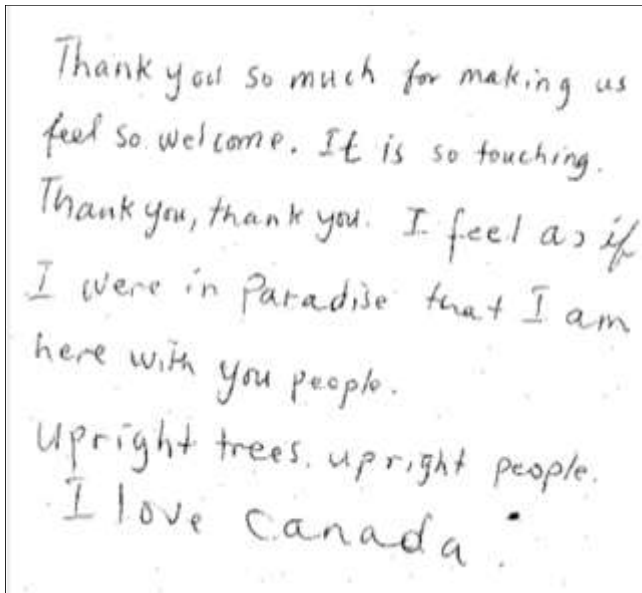 Thank you so much for making us
feel so welcome. It is so touching.
Thank you, thank you. I feel as if
I were in Paradise that I am
here with you people.
upright trees. upright people.
I love canada.